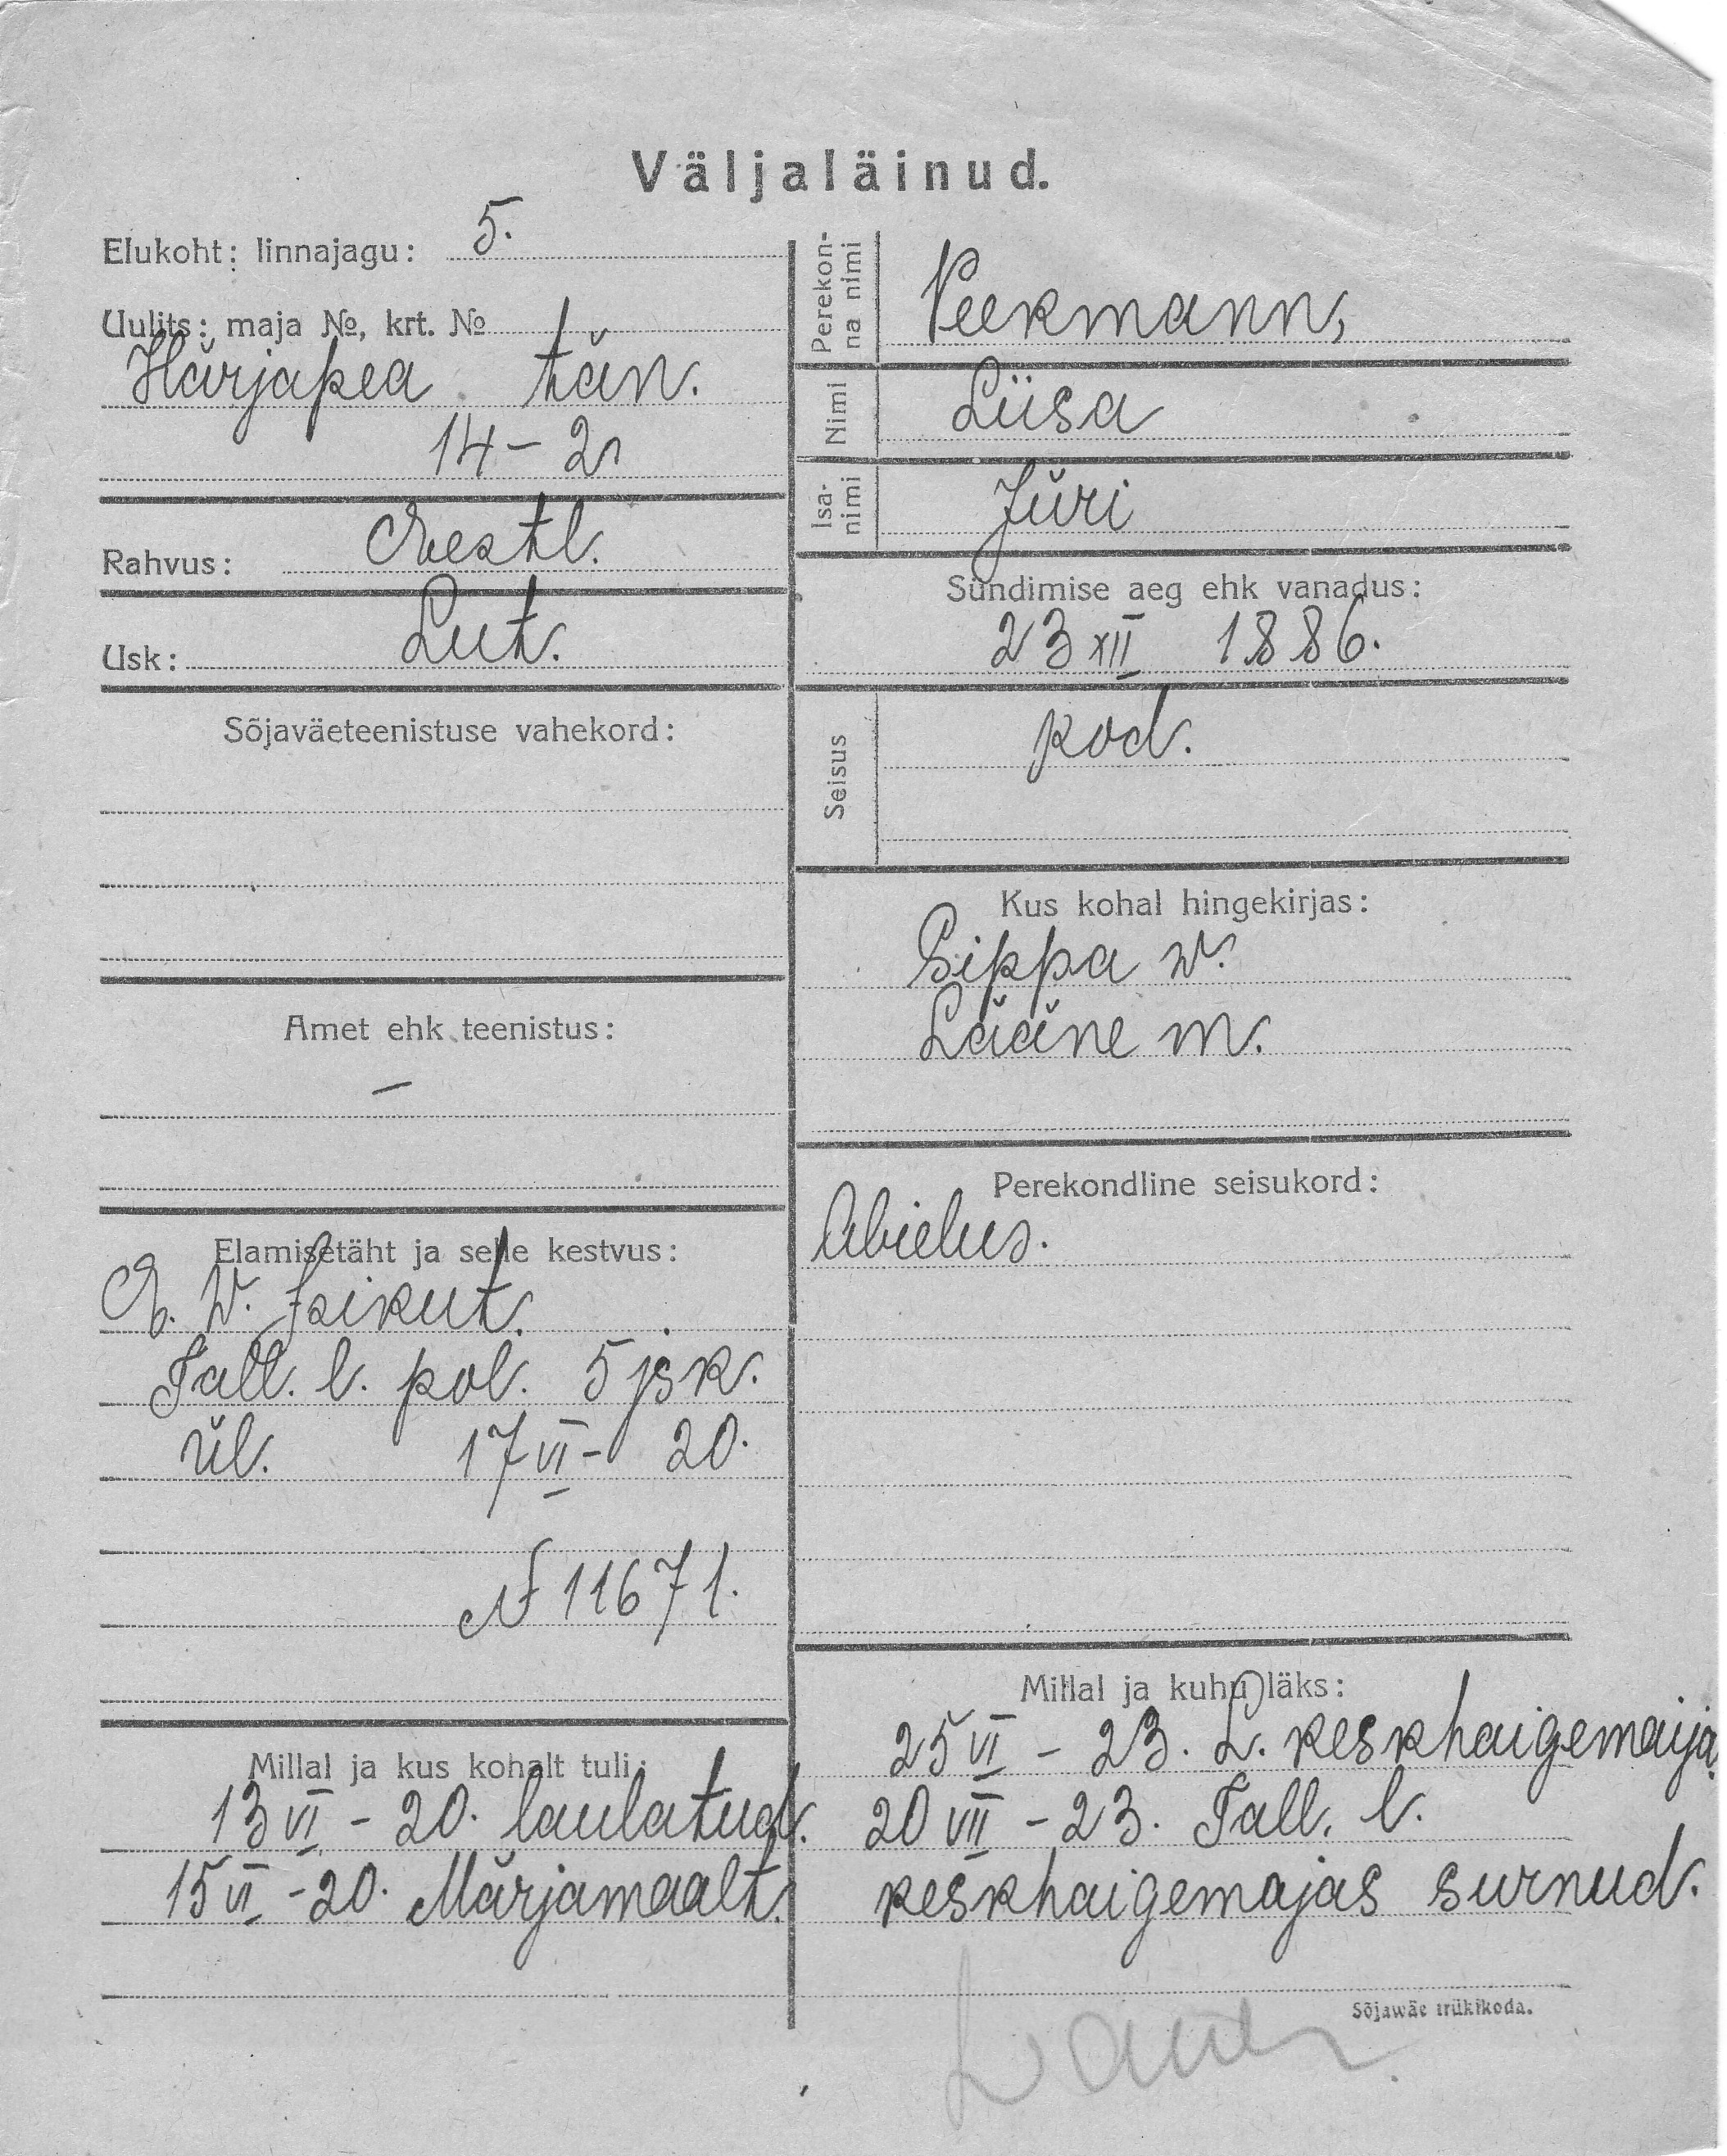 Väljaläinud.
Elukoht: linnajagu: 5.
Uulits: maja №, krt. №
Härjapea tän.
14 – 2
Rahvus: Eestl.
Usk: Lut.
Sõjaväeteenistuse vahekord:
Amet ehk teenistus:
–
Elamisetäht ja selle kestvus:
E. W. Isikut.
Tall. l. pol. 5 jsk.
ül. 17 VI – 20.
N 11671.
Millal ja kus kohalt tuli:
13 VI – 20. laulatud.
15 VI – 20. Märjamaalt.
Perekonna nimi Peekmann,
Nimi Liisa
Isanimi Jüri
Sündimise aeg ehk vanadus:
23 XII 1886.
Seisus kod.
Kus kohal hingekirjas:
Sippa w.
Lääne m.
Perekondline seisukord:
Abielus.
Millal ja kuhu läks:
25 VI – 23. L. keskhaigemaija.
20 VII – 23. Tall. l.
keskhaigemajas surnud.
Sõjawäe trükikoda.